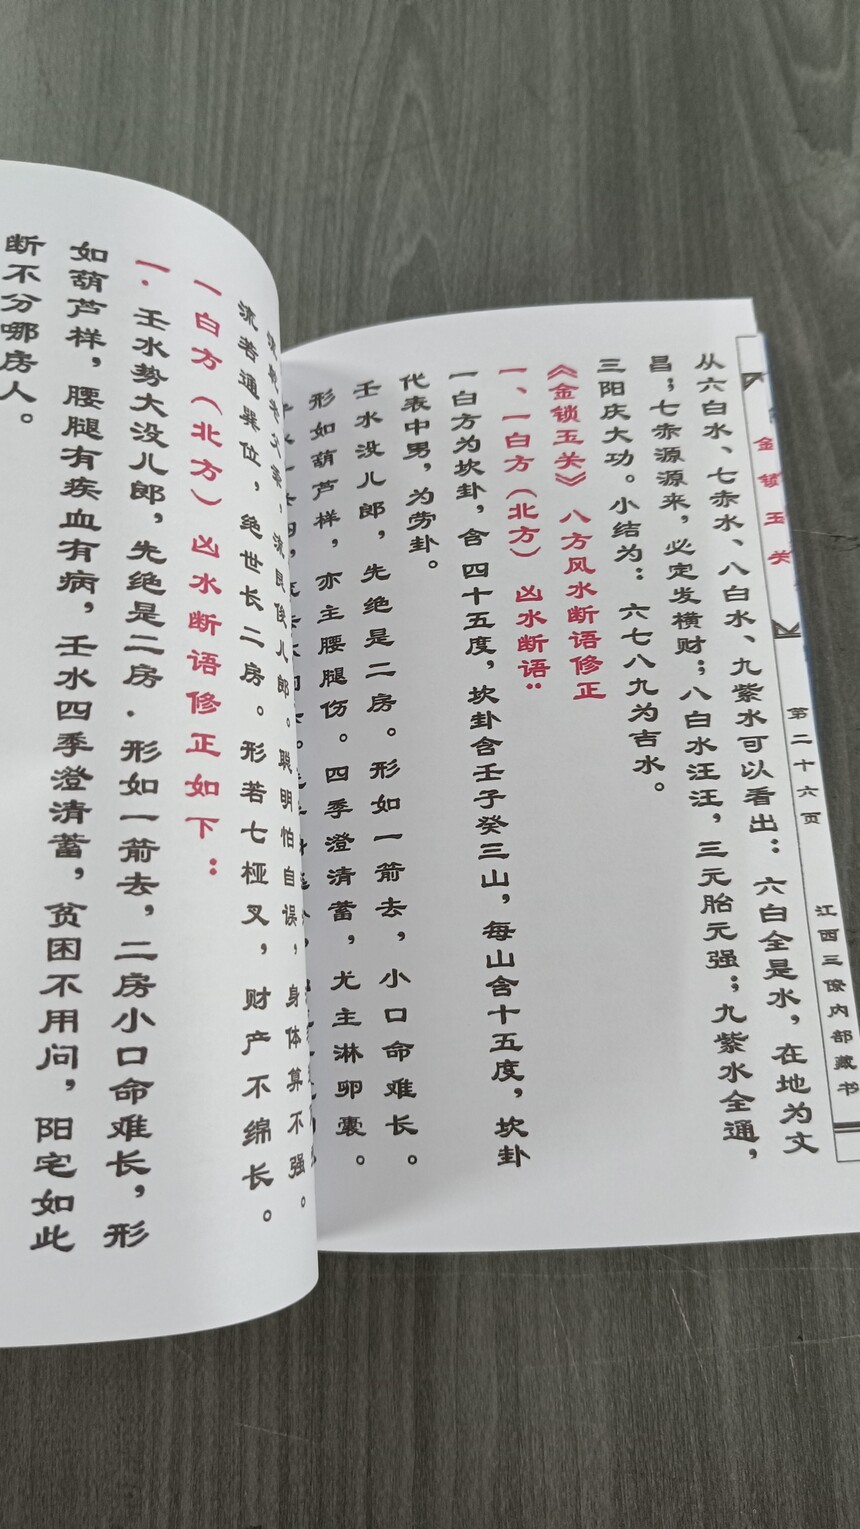 金锁玉关
第二十六页
江西三僚内部藏书
从六白水、七赤水、八白水、九紫水可以看出：六白全是水，在地为文
昌；七赤源源来，必定发横财；八白水汪汪，三元胎元强；九紫水全通，
三阳庆大功。小结为：六七八九为吉水。
《金锁玉关》八方风水断语修正
一、一白方（北方）凶水断语“
一白方为坎卦，含四十五度，坎卦含壬子癸三山，每山含十五度，坎卦
代表中男，为劳卦。
壬水没儿郎，先绝是二房。形如一箭去，小口命难长。
形如葫芦样，亦主腰腿伤。四季澄清蓄，尤主淋卵囊。
儿郎。聪明怕自误，身体算不强。
流若通巽位，绝世长二房。形若七桠叉，财产不绵长。
一白方（北方）凶水断语修正如下：
一．壬水势大没儿郎，先绝是二房．形如一箭去，二房小口命难长，形
如葫芦样，腰腿有疾血有病，壬水四季澄清蓄，贫困不用问，阳宅如此
断不分哪房人。